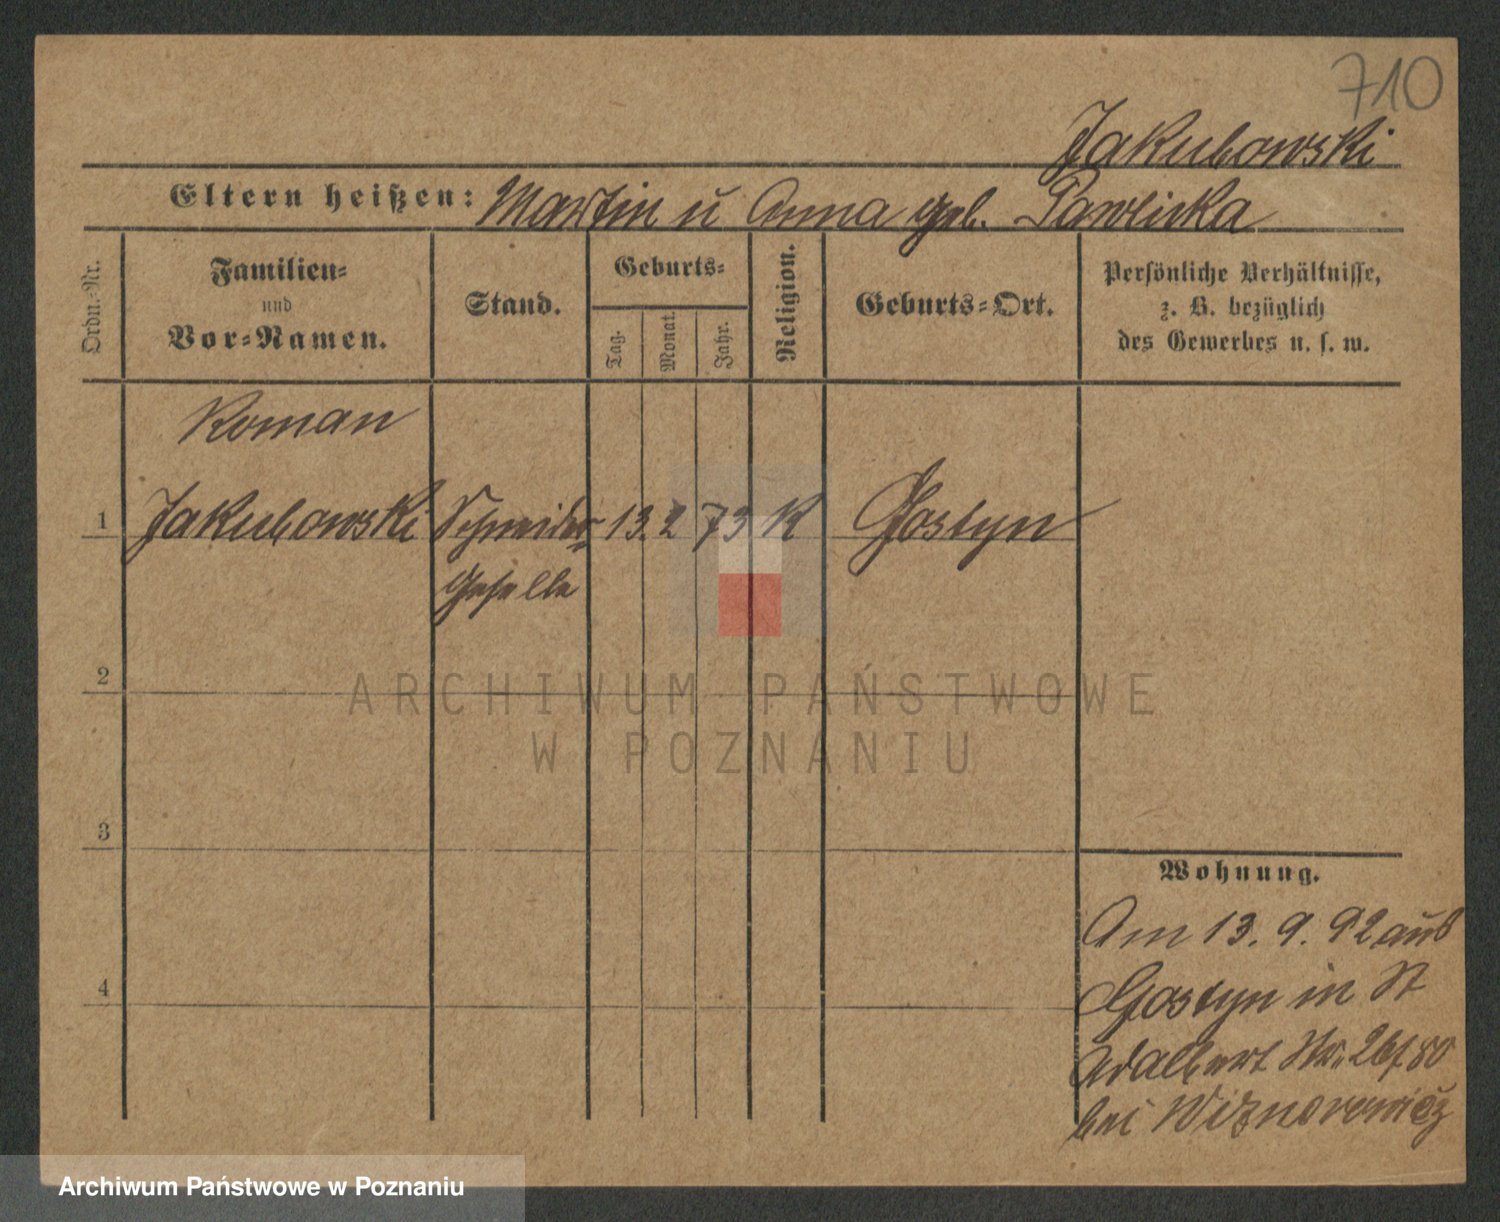 710
Jakubowski
Eltern heißen: Martin ū Anna geb. Pawlicka
Ordn.-Nr.
Familien-
und
Vor-Namen.
Stand.
Geburts-
Tag.
Monat.
Jahr.
Religion.
Geburts-Ort.
Persönliche Verhältnisse,
z. B. bezüglich
des Gewerbes u. s. w.
Roman
1 Jakubowski Schneider- 13. 2 73 K Gostyn
geselle
2
3
4
Wohnung.
Am 13. 9. 92 aus
Gostyn in St
Adalbert Str.
bei
ARCHIWUM PAŃSTWOWE
W POZNANIU
Archiwum Państwowe w Poznaniu